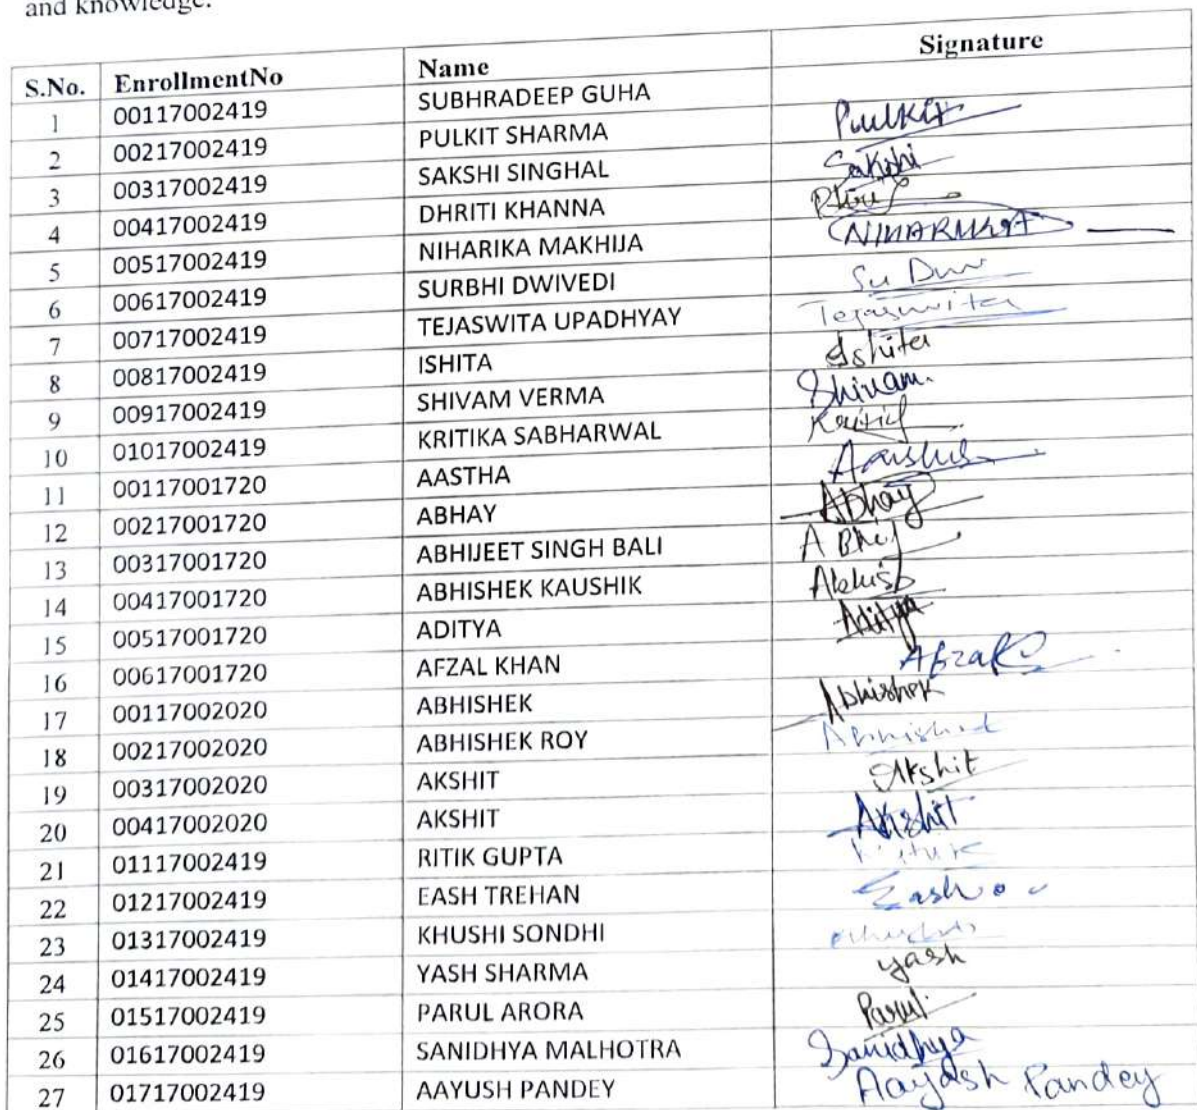 and knowledge.
S.No. EnrollmentNo Name Signature
1 00117002419 SUBHRADEEP GUHA
2 00217002419 PULKIT SHARMA Pulkit
3 00317002419 SAKSHI SINGHAL Sakshi
4 00417002419 DHRITI KHANNA
5 00517002419 NIHARIKA MAKHIJA NIHARIKA
6 00617002419 SURBHI DWIVEDI
7 00717002419 TEJASWITA UPADHYAY Tejaswita
8 00817002419 ISHITA Ishita
9 00917002419 SHIVAM VERMA Shivam
10 01017002419 KRITIKA SABHARWAL
11 00117001720 AASTHA
12 00217001720 ABHAY Abhay
13 00317001720 ABHIJEET SINGH BALI
14 00417001720 ABHISHEK KAUSHIK
15 00517001720 ADITYA Aditya
16 00617001720 AFZAL KHAN Afzal
17 00117002020 ABHISHEK Abhishek
18 00217002020 ABHISHEK ROY
19 00317002020 AKSHIT Akshit
20 00417002020 AKSHIT Akshit
21 01117002419 RITIK GUPTA
22 01217002419 EASH TREHAN Eash
23 01317002419 KHUSHI SONDHI
24 01417002419 YASH SHARMA yash
25 01517002419 PARUL ARORA Parul
26 01617002419 SANIDHYA MALHOTRA Sanidhya
27 01717002419 AAYUSH PANDEY Aayush Pandey